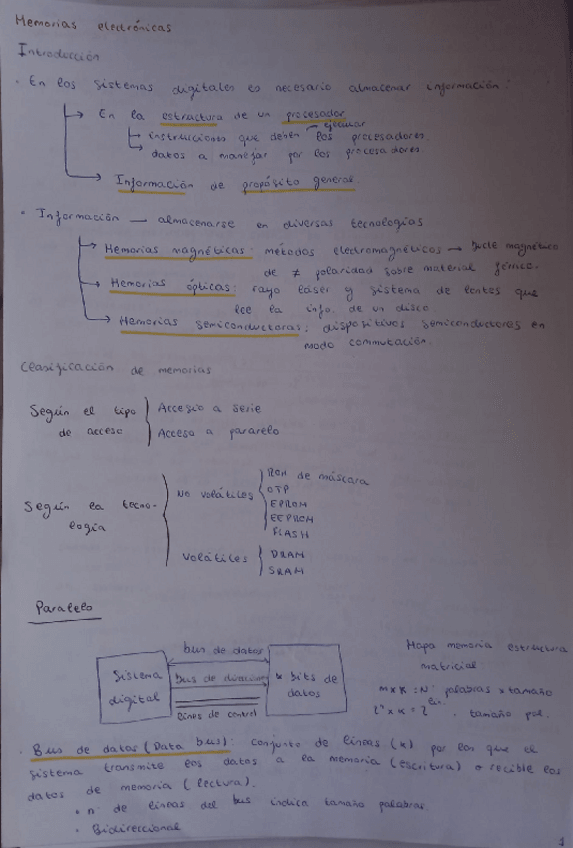 Memorias electrónicas
Introducción
· En los sistemas digitales es necesario almacenar información:
→ En la estructura de un procesador
ejecutar
→ instrucciones que deben los procesadores.
→ datos a manejar por los procesadores.
→ Información de propósito general.
• Información — almacenarse en diversas tecnologías
→ Memorias magnéticas: métodos electromagnéticos → bucle magnético
de ≠ polaridad sobre material férrico.
→ Memorias ópticas: rayo láser y sistema de lentes que
lee la info. de un disco.
→ Memorias semiconductoras: dispositivos semiconductores en
modo conmutación.
Clasificación de memorias
Según el tipo de acceso
Acceso a serie
Acceso a pararelo
Según la tecno-
logía
No volátiles
ROM de máscara
OTP
EPROM
EEPROM
FLASH
Volátiles
DRAM
SRAM
Paralelo
Sistema
digital
bus de datos
bus de direcciones
líneas de control
bits de
datos
Mapa memoria estructura
matricial
m x K = Nº palabras x tamaño
tamaño pal.
· Bus de datos (Data bus): conjunto de líneas (k) por las que el
sistema transmite los datos a la memoria (escritura) o recible los
datos de memoria (lectura).
• nº de líneas del bus indica tamaño palabras.
• Bidireccional
1